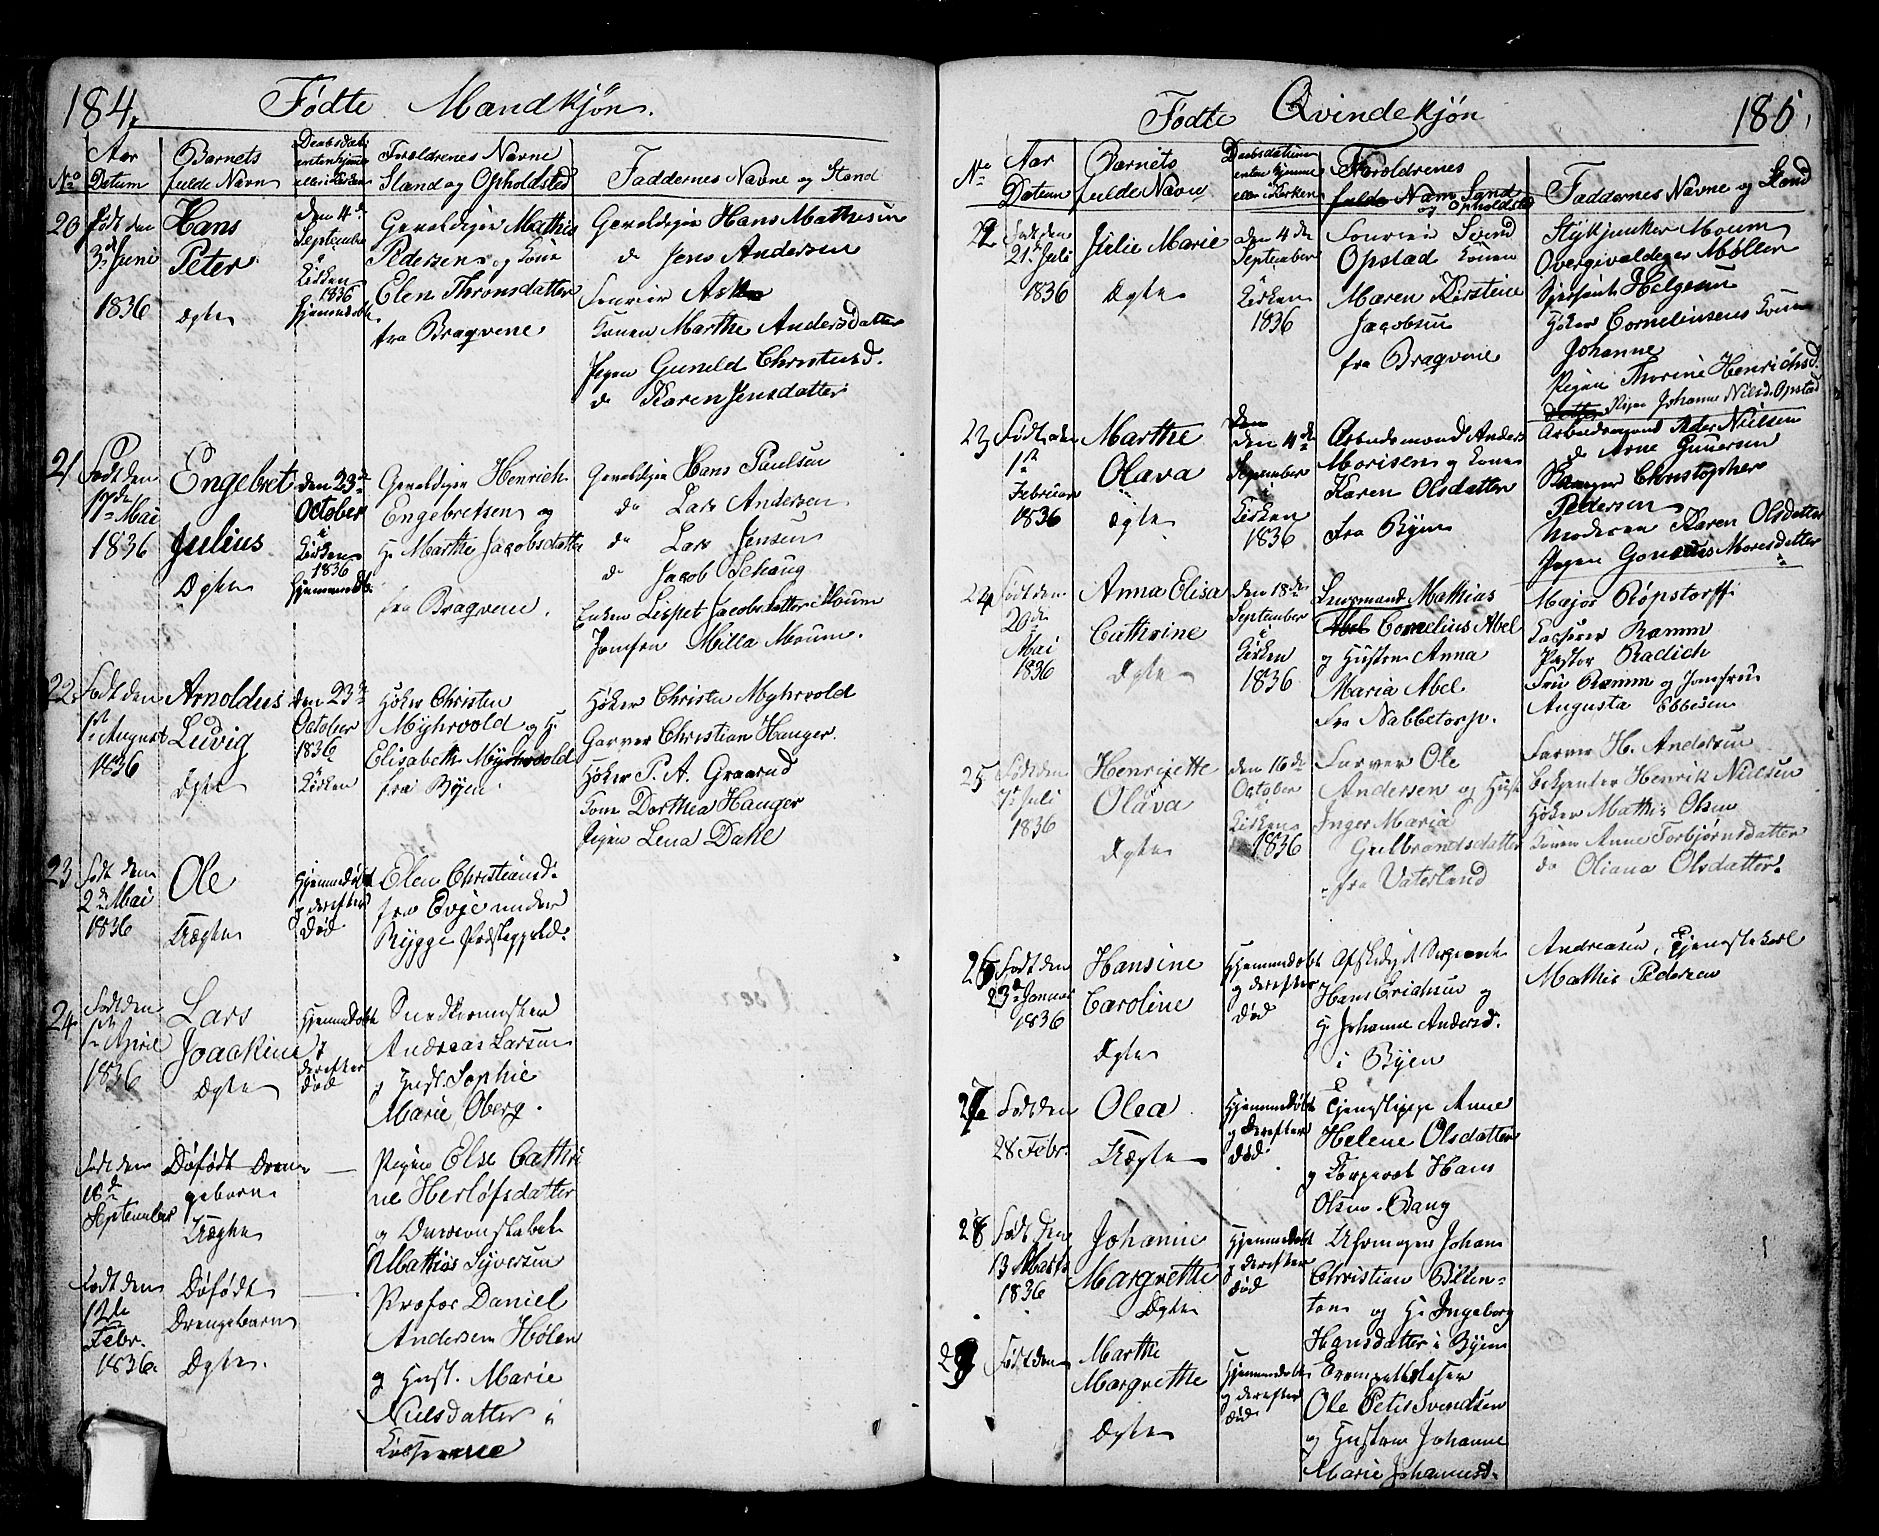 184.
Fødte Mandkjøn.
No
Aar
Datum
Barnets
fulde Navn
Daabsdat
enten hjemme
eller i Kirken
Forældrenes Navne
Stand og Opholdsted
Faddernes Navne og Stand
20
født den
3d Juni
1836
Hans
Peter
Ægte
den 4de
September
i
Kirken
1836
hjemmedøbt
Geveldigin Mathis
Pedersen og Kone
Elen Thronsdatter
fra Bragvene
Geveldigin Hans Mathesen
do Jens Andersen
Ask
Konen Marthe Andersdatter
Pigen Guneld Christensd.
do Karen Jensdatter
21
Født den
17de Mai
1836
Engebret
Julius
Ægte
den 23de
October
i
Kirken
1836
hjemmedbt
Geveldigin Henrich
Engebretsen og
H. Marthe Jacobsdatter
fra Bragvene.
Geveldigin Hans Paulsen
do Lars Andersen
do Lars Jensen
do Jacob Schaug
Enken Lispet Jacobsdatter Moum
Jomfru Milla Moum.
22.
Født den
1st August
1836
Arnoldus
Ludvig
Ægte
den 23de
October
1836
i
Kirken
Høker Christen
Myhrvold og H.
Elisabeth Myhrvold
fra Byen
Høker Christen Myhrvold
Garver Christian Hauger.
Høker P. A. Graarud
Kone Dorthia Hauger
Pigen Lena Dahl
23
Født den
2den Mai
1836
Ole
Uægte
Hjemmedøbt
og derefter
død
Elen Christiansd.
fra Evje under
Rygge Præstegjeld.
24
Født den
1st April
1836
Lars
Joackim
Ægte
Hjemmedøbt
og
derefter
død
Snedkermester
Andreas Larsen
og Hust. Sophie
Marie Oberg.
Født den
18de
September
Døfødt Drenge
geborn
Uægte
Pigen Else Cathri
ne Herløfsdatter
og
Mathias Syversen
Født den
12te
Febr.
1836.
Døfødt
Drengebarn
Ægte.
Daniel
Andersen Hølen
og Hust. Marie
Nielsdatter i
Fødte Qvindekjøn
185.
No
Aar
Datum
Barnets
fulde Navn
Daabsdatum
enten hjemme
eller i Kirken
Foroldrenes
fulde Navn Stand
og Opholdsted
Faddernes Navne og Stand
22
Født den
21de Juli
1836
Julie Marie
Ægte
den 4de
September
i
Kirken
1836
Svend
Opstad Konen
Maren Kirstine
Jacobsen
fra Bragvene
Stykjunker Moum
Overgivaldeger Møller
Sersjent Helgesen
Høker Cornelinsens Kone
Johanne
Pigen Thorine Henrichsd.
Pigen Johanne Nilsd. Opstad
23
Født den
1st
Februar
1836
Marthe
Olava
Ægte
den 4de
September
i
Kirken
1836
Arbeidsmand Anders
Morisen og Konen
Karen Olsdatter
Fra Byen
Arbeidsmand Peder Nielsen
do Arne Gunersen
Christopher
Pedersen
Moderen Karen Olsdatter
Pigen Moresdatter
24
Født den
20de
Mai
1836
Anna Elisa
Cathrine
Ægte
den 18de
September
i
Kirken
1836
Lensmand Mathias
Cornelius Abel
og Hustru Anna
Maria Abel
fra Nabbetorp.
Major Røpstorff
Kasserer Ramm
Pastor Radich
Fru Ramm og Jomfru
Augusta Ebbesen
25
Født den
7de Juli
1836
Henriette
Olava
Ægte
den 16de
October
i
Kirken
1836
Farver Ole
Andersen og Hust
Inger Maria
Gulbrandsdatter
fra Vaterland
Farver H. Andersen
Henrik Nielsen
Høker Mathis Olsen
Konen Anne Torbjørnsdatter
do Oliana Olsdatter.
26
Født den
23de Januar
1836
Hansine
Caroline
Ægte
Hjemmedøbt
og derefter
død
Afskediget Sergeant
Hans Erichsen og
H. Johanne Andersd.
i Byen
Andreasen, Tjenestekarl
Mathis Pedersen
27
Født den
28 Febr.
Olea
Uægte
Hjemmedøbt
og derefter
død
Tjenestepige Anne
Helene Olsdatter
og Corporal Hans
Olsen Bang
28
Født den
13 Marts
1836
Johanne
Margrethe
Ægte
Hjemmedøbt
og derefter
død
Uhrmager Johan
Christian Billen=
ton og H. Ingeborg
Hansdatter i Byen
29
Født den
Marthe
Margrethe
Ægte
Hjemmedøbt
og derefter
død
Ole Svendsen
og Hustru Johanne
Marie Johannesd.